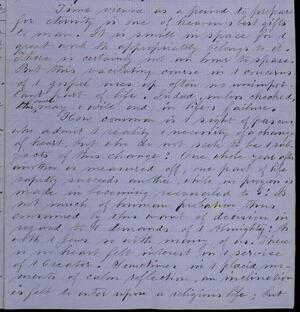 Time viewed as a period to prepare
for eternity is one of heavens best gifts
to man. It is small in space for t
great work th appropriately belongs to it.
There is certainly not an hour to spare.
But this vacillating course in t concerns
of t gospel uses up often no unimport-
ant part of life. Indeed unless checked,
the may & will end in life's failure.
How common is t sight of persons
who admit t reality & necessity of a change
of heart, but who do not seek to be sub-
jects of this change? One whole year after
another is measured off, one part of life
rapidly succeeds another while no progress is
made in becoming reconciled to G. Is
not much of human probation thus
consumed by this want of decision in
regard to t demands of t Almighty? As
with t Jews so with many of us. There
is no heart felt interest in t service
of t Creator. Sometimes in t placid mo-
ments of calm reflection, an inclination
is felt to enter upon a religious life, but